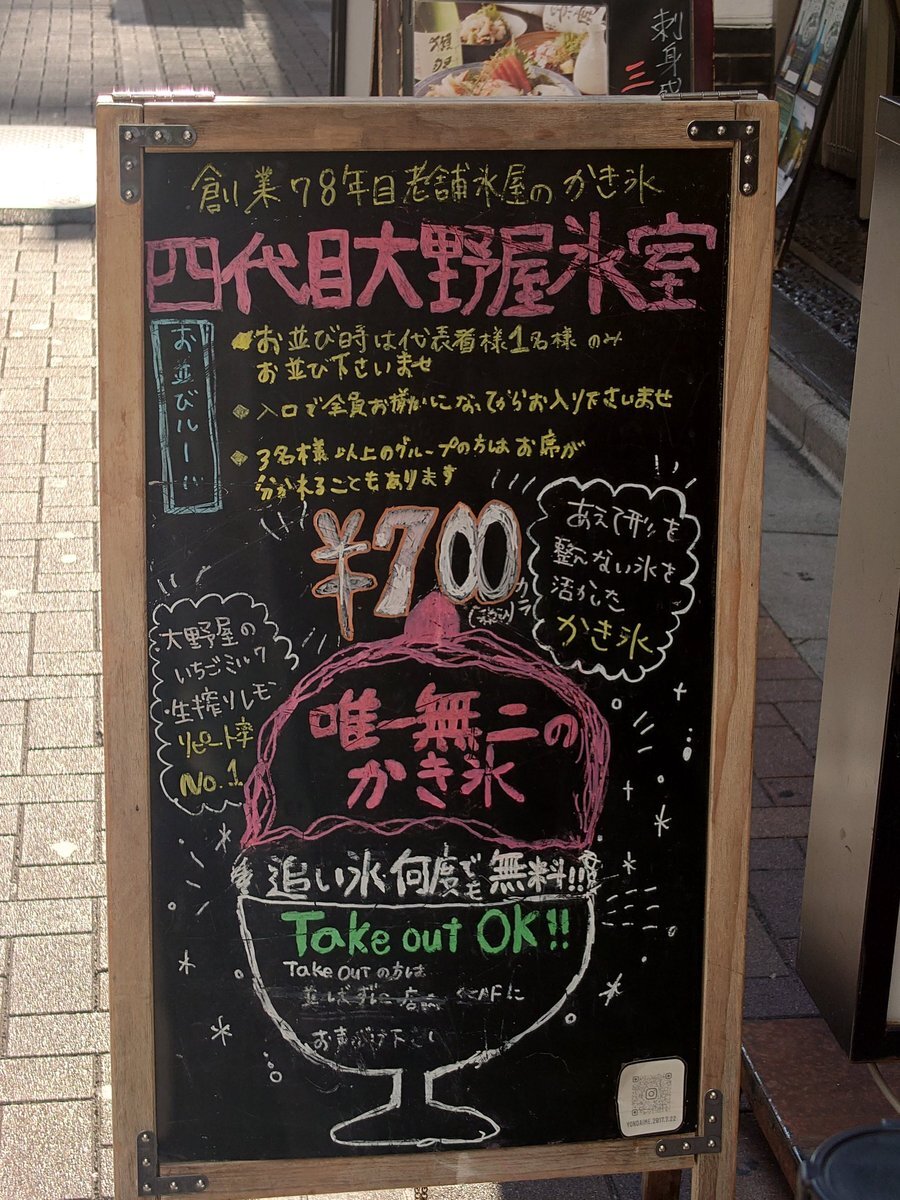 刺身
三
創業78年目老舗氷屋のかき氷
四代目大野屋氷室
お並びルール
お並び時は代表者様1名様のみ
お並び下さいませ
入口で全員お揃いになってからお入り下さいませ
3名様以上のグループの方はお席が
分かれることもあります
¥700
(税込)
から
あえて形を
整えない氷を
活かした
かき氷
大野屋の
いちごミルク
生搾りレモン
リピート率
No.1
唯一無二の
かき氷
追い氷何度でも無料!!
Take out OK!!
Take Outの方は
並ばずに店
お声がけ下さい
YONDAIME.2017.7.22